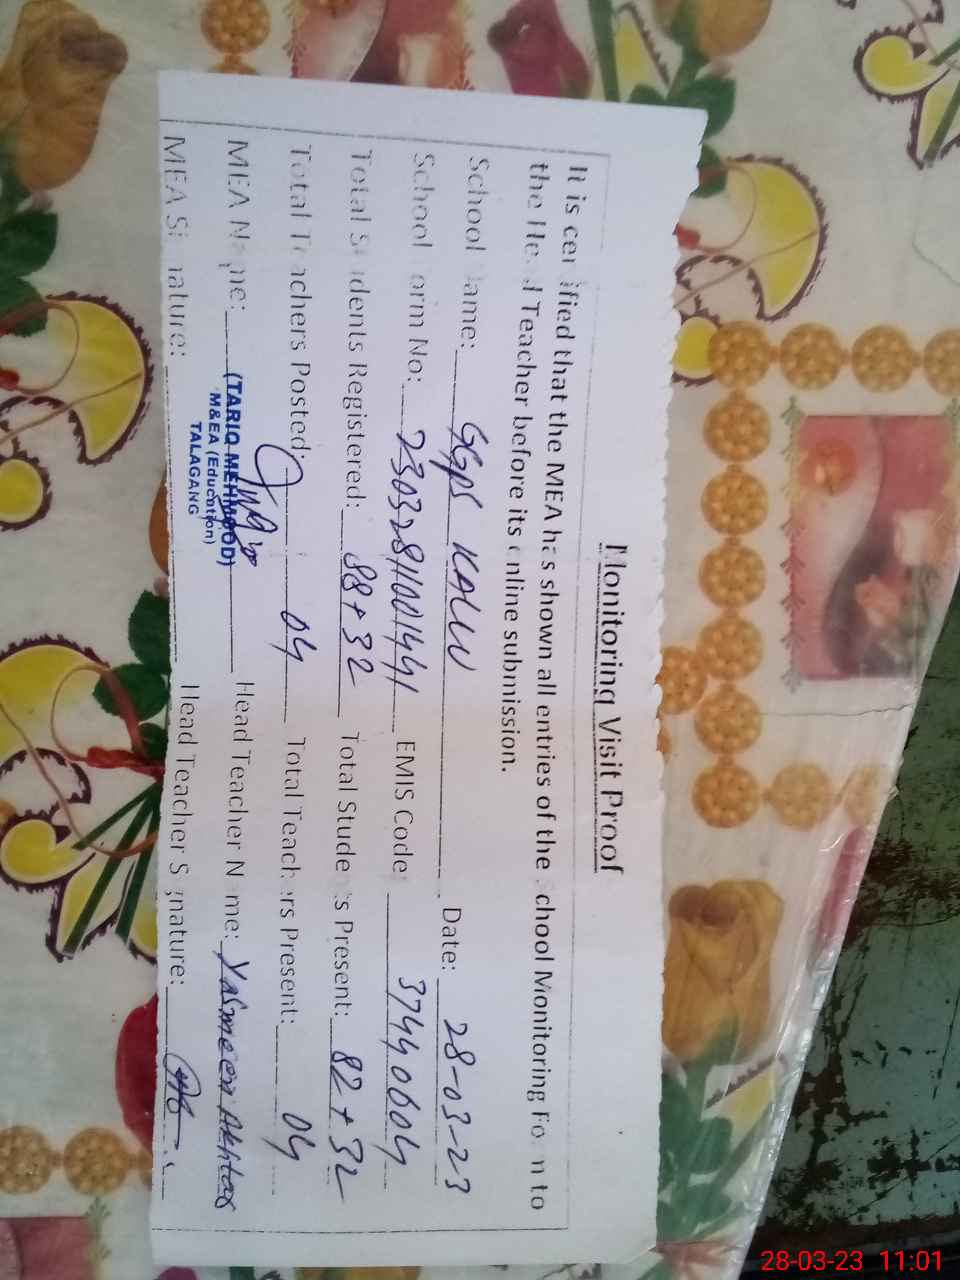 Monitoring Visit Proof
It is cer ified that the MEA has shown all entries of the chool Monitoring Fo m to
the He d Teacher before its online submission.
School ame: GGPS KALU Date: 28-03-23
School orm No: 23032811001441 EMIS Code: 37440604
Total S dents Registered: 88+32 Total Stude s Present: 82+32
Total Te achers Posted: 04 Total Teach rs Present: 04
MEA N me: (TARIQ MEHMOOD) Head Teacher N me: Yasmeen Akhtar
M&EA (Education)
TALAGANG
MEA Si nature: Head Teacher S gnature:
28-03-23 11:01